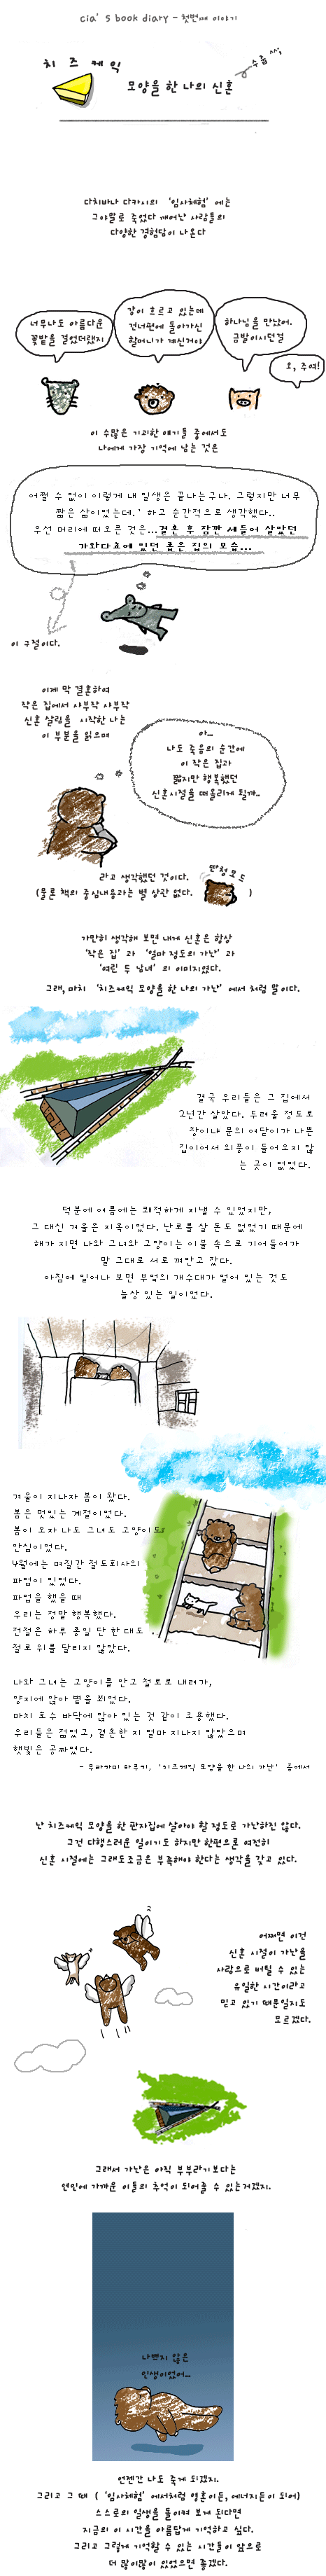 cia's book diary - 첫번째 이야기
치즈케익
모양을 한 나의 신혼
수줍
다치바나 다카시의 '임사체험' 에는
그야말로 죽었다 깨어난 사람들의
다양한 경험담이 나온다
너무나도 아름다운
꽃밭을 걸었더랬지
강이 흐르고 있는데
건너편에 돌아가신
할머니가 계신거야
하나님을 만났어.
금발이시던걸
오, 주여!
이 수많은 기괴한 얘기들 중에서도
나에게 가장 기억에 남는 것은
어쩔 수 없이 이렇게 내 일생은 끝나는구나. 그렇지만 너무
짧은 삶이었는데.' 하고 순간적으로 생각했다..
우선 머리에 떠오른 것은...결혼 후 잠깐 세들어 살았던
가와다쵸에 있던 좁은 집의 모습...
이 구절이다.
이제 막 결혼하여
작은 집에서 사부작 사부작
신혼 살림을 시작한 나는
이 부분을 읽으며
아...
나도 죽음의 순간에
이 작은 집과
짧지만 행복했던
신혼시절을 떠올리게 될까..
라고 생각했던 것이다.
(물론 책의 중심내용과는 별 상관 없다.
딴청모드
)
가만히 생각해 보면 내게 신혼은 항상
'작은 집' 과 '얼마 정도의 가난' 과
'여린 두 남녀' 의 이미지였다.
그래, 마치 '치즈케익 모양을 한 나의 가난' 에서 처럼 말이다.
결국 우리들은 그 집에서
2년간 살았다. 두려울 정도로
창이나 문의 여닫이가 나쁜
집이어서 외풍이 들어오지 않
는 곳이 없었다.
덕분에 여름에는 쾌적하게 지낼 수 있었지만,
그 대신 겨울은 지옥이었다. 난로를 살 돈도 없었기 때문에
해가 지면 나와 그녀와 고양이는 이불 속으로 기어들어가
말 그대로 서로 껴안고 잤다.
아침에 일어나 보면 부엌의 개수대가 얼어 있는 것도
늘상 있는 일이었다.
겨울이 지나자 봄이 왔다.
봄은 멋있는 계절이었다.
봄이 오자 나도 그녀도 고양이도
안심이었다.
4월에는 며칠간 철도회사의
파업이 있었다.
파업을 했을 때
우리는 정말 행복했다.
전철은 하루 종일 단 한 대도
철로 위를 달리지 않았다.
나와 그녀는 고양이를 안고 철로로 내려가,
양지에 앉아 볕을 쬐었다.
마치 호수 바닥에 앉아 있는 것 같이 조용했다.
우리들은 젊었고, 결혼한 지 얼마 지나지 않았으며
햇빛은 공짜였다.
- 무라카미 하루키, '치즈케익 모양을 한 나의 가난' 중에서
난 치즈케익 모양을 한 판자집에 살아야 할 정도로 가난하진 않다.
그건 다행스러운 일이기도 하지만 한편으론 여전히
신혼 시절에는 그래도조금은 부족해야 한다는 생각을 갖고 있다.
어쩌면 이건
신혼 시절이 가난을
사랑으로 버틸 수 있는
유일한 시간이라고
믿고 있기 때문일지도
모르겠다.
그래서 가난은 아직 부부라기보다는
연인에 가까운 이들의 추억이 되어줄 수 있는거겠지.
나쁘지 않은
인생이었어...
언젠간 나도 죽게 되겠지.
그리고 그 때 ( '임사체험' 에서처럼 영혼이든, 에너지든이 되어)
스스로의 일생을 돌이켜 보게 된다면
지금의 이 시간을 아름답게 기억하고 싶다.
그리고 그렇게 기억할 수 있는 시간들이 앞으로
더 많이많이 있었으면 좋겠다.